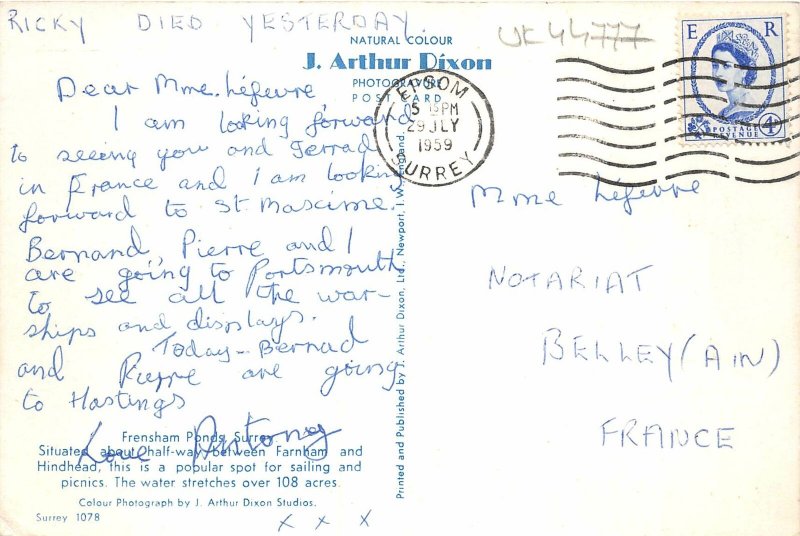 RICKY DIED YESTERDAY.
UK44777
NATURAL COLOUR
J. Arthur Dixon
PHOTOGRAVURE
POST CARD
Dear Mme. Léfevre
I am looking forward
to seeing you and Jerrad
in France and I am looking
forward to St. Mascime.
Bernand, Pierre and I
are going to Portsmouth
to see all the war-
ships and displays.
Today - Bernad
and Pierre are going
to Hastings
Love Antony
Frensham Ponds, Surrey
Situated about half-way between Farnham and
Hindhead, this is a popular spot for sailing and
picnics. The water stretches over 108 acres.
Colour Photograph by J. Arthur Dixon Studios.
Surrey 1078
x x x
Printed and Published by J. Arthur Dixon, Ltd., Newport, I.W., England.
EPSOM
5 15 PM
29 JLY
1959
SURREY
E R
POSTAGE
REVENUE
4D
Mme Léfevre
NOTARIAT
BELLEY (AIN)
FRANCE